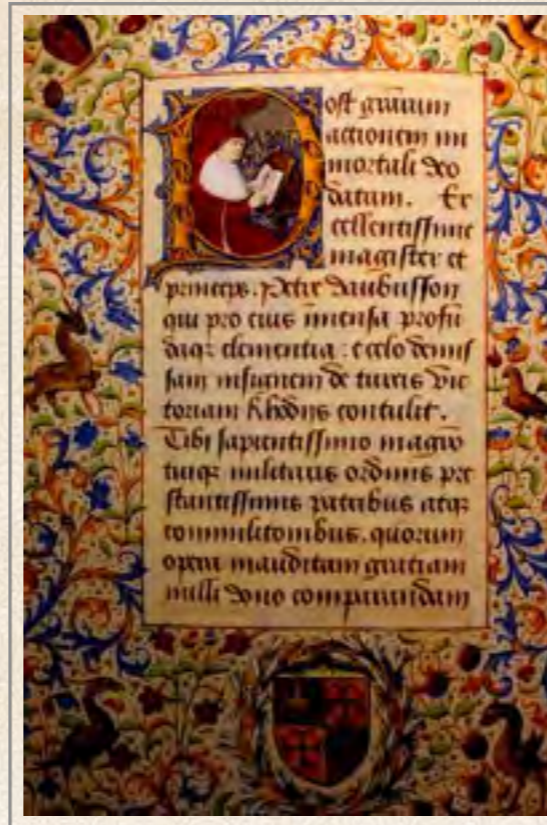 Post gratiarum
actionem im
mortali deo
datam. Ex
cellentissime
magister et
princeps. Petre Daubusson
qui pro eius immensa profu(n)
daq; clementia : e celo demis
sam insignem de turcis vic
toriam Rhodijs contulit.
Tibi sapientissimo magno
tuisq; militaris ordinis pre
stantissimis patribus atq;
commilitonibus. quorum
opera inauditam gratiam
nulli dono comparandam